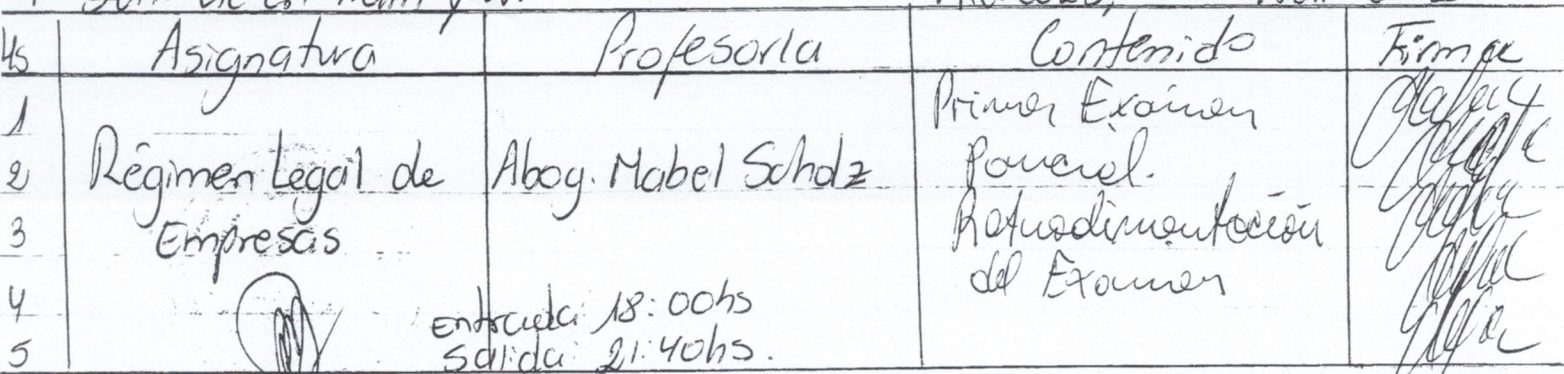 Hs Asignatura Profesor/a Contenido Firma
1 Primer Exámen
2 Régimen Legal de Abog. Mabel Scholz Parcial.
3 Empresas Retroalimentación
del Examen
4 Entrada: 18:00hs
5 Salida: 21:40hs.